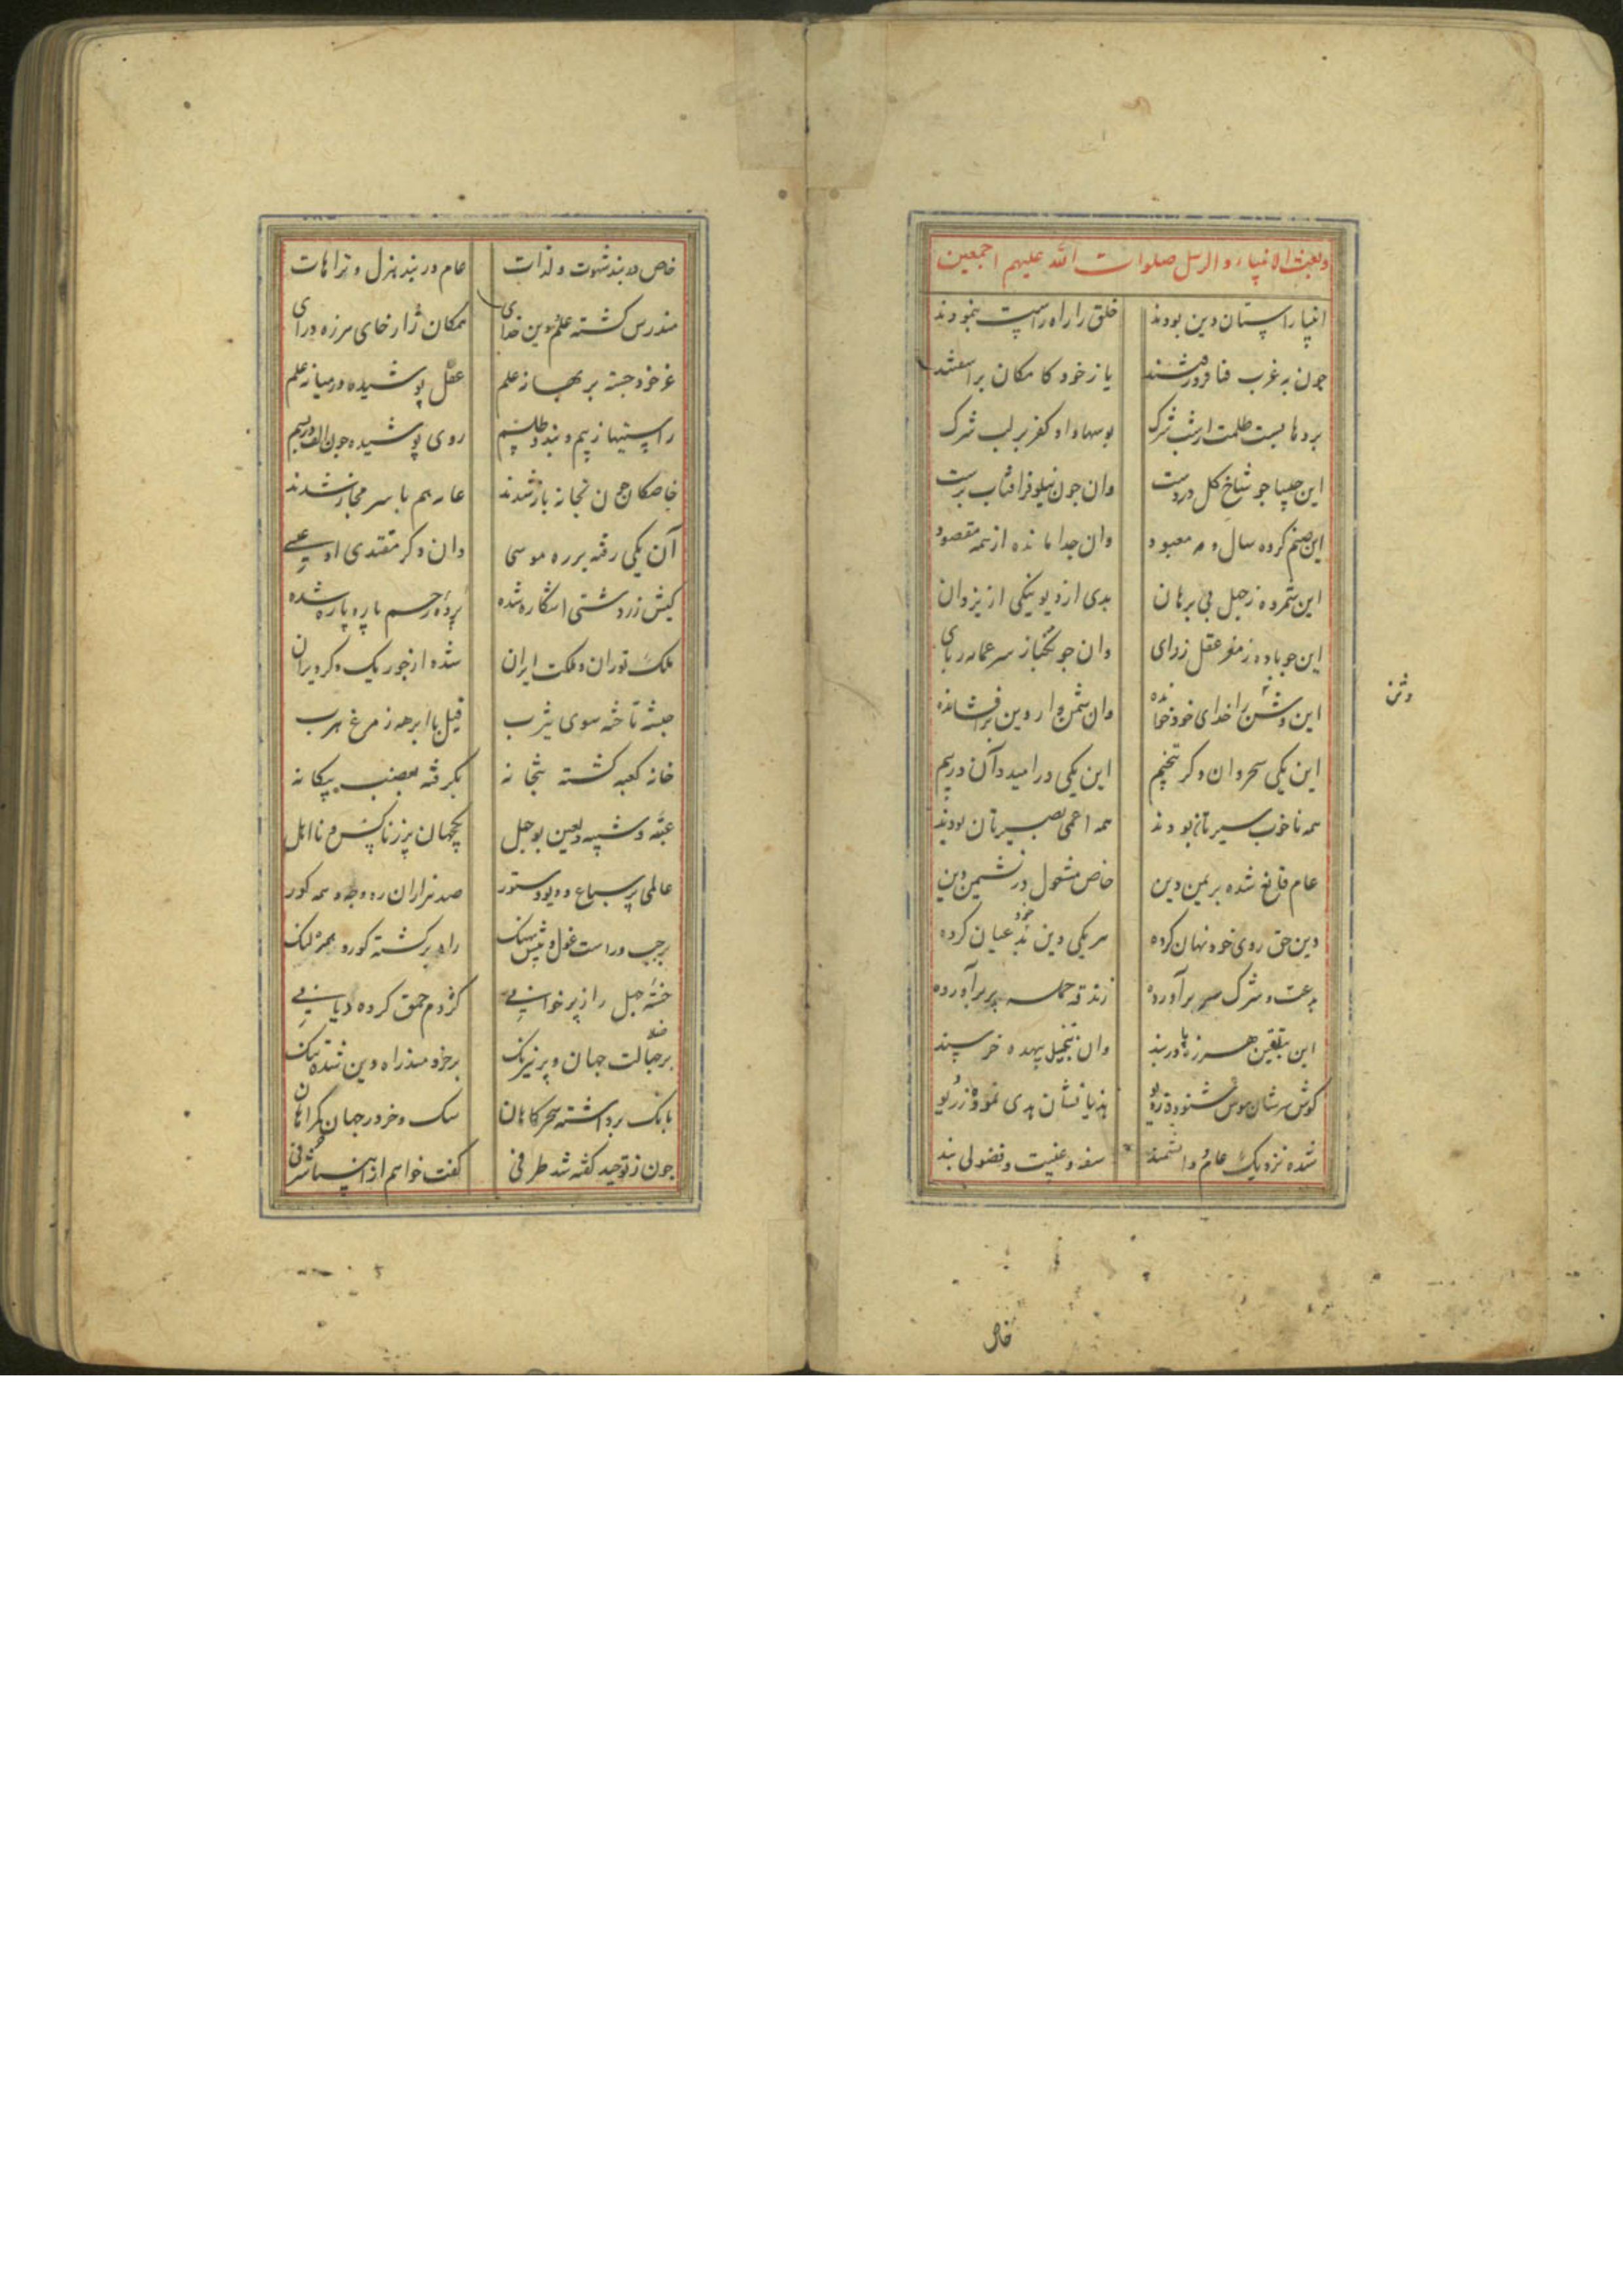 وبعث الانبیاء والرسل صلوات الله علیهم اجمعین
انبیا راستان دین بودند خلق را راه راست بنمودند
چون بغرب فنا فرو رفتند باز خودکامکان براسفتند
پردها بست ظلمت از شب شرک بوسها داد کفر بر لب شرک
این چلیپا جو شاخ کل در دست وان جون نیلوفر افتاب پرست
این صنم کرده سال و مه معبود وان جدا مانده از همه مقصود
این شمرده ز جهل بی برهان بدی از دیو نیکی از یزدان
این جو باده ز مغز عقل زدای وان جو نکبا ز سر عمامه ربای
این وثن را خدای خود خوانده وان شمن وار دین برافشانده
این یکی سحر وان دکر تنجیم این یکی در امید و آن در بیم
همه ناخوب سیرتان بودند همه اعمی بصیرتان بودند
عام قانع شده بر یمن دین خاص مشغول در نشیمن دین
دین حق روی خود نهان کرده هر یکی دین بد عیان کرده
بدعت و شرک سر برآورده زندقه جمله پر برآورده
این بتلقین هرزه‌ا دربند وان بتخییل بیهده خرسند
کوش سرشان هوس شنوده ز ریو هذیانشان هدی نموده ز دیو
شده نزدیک عام و دانشمند سفه و غیبت و فضولی پند
وثن
خاص
خاص در بند شهوت و لذات عام در بند هزل و ترهات
مندرس کشته علم دین خدای همکان ژاژ خای هرزه درای
عز خود جسته بر بهانه علم عقل پوشیده در میانه علم
راستیها ز بیم و بند و طلسم روی پوشیده جون الف در بسم
خاصکان جون بخانه باز شدند عامه هم با سر مجاز شدند
آن یکی رفته بر ره موسی وان دکر مقتدی او عیسی
کیش زردشتی اشکاره شده پرده رحم پاره پاره شده
ملک توران و ملکت ایران شده از جور یک دکر ویران
حبشه تاخته سوی یثرب فیل با ابرهه ز مرغ هرب
خانه کعبه کشته بتخانه بکرفته بغصب بیکانه
عتبه و شیبه و لعین بوجهل یکجهان پر ز ناکس و نااهل
عالمی پر سباع و دیو و ستور صد هزاران ره و چه و همه کور
بر چپ و راست غول و پیش نهنک راهبر کشته کور و همره لنک
خفته جهل را ز پرخوابی کژدم حمق کرده دبابی
پر ضلالت جهان و پر نیرنک بر خردمند راه دین شده تنک
بانک برداشته سحرکاهان سک و خر در جهان کمراهان
جون ز توحید کفته شد طرفی کفت خواهم از انبیا شرفی